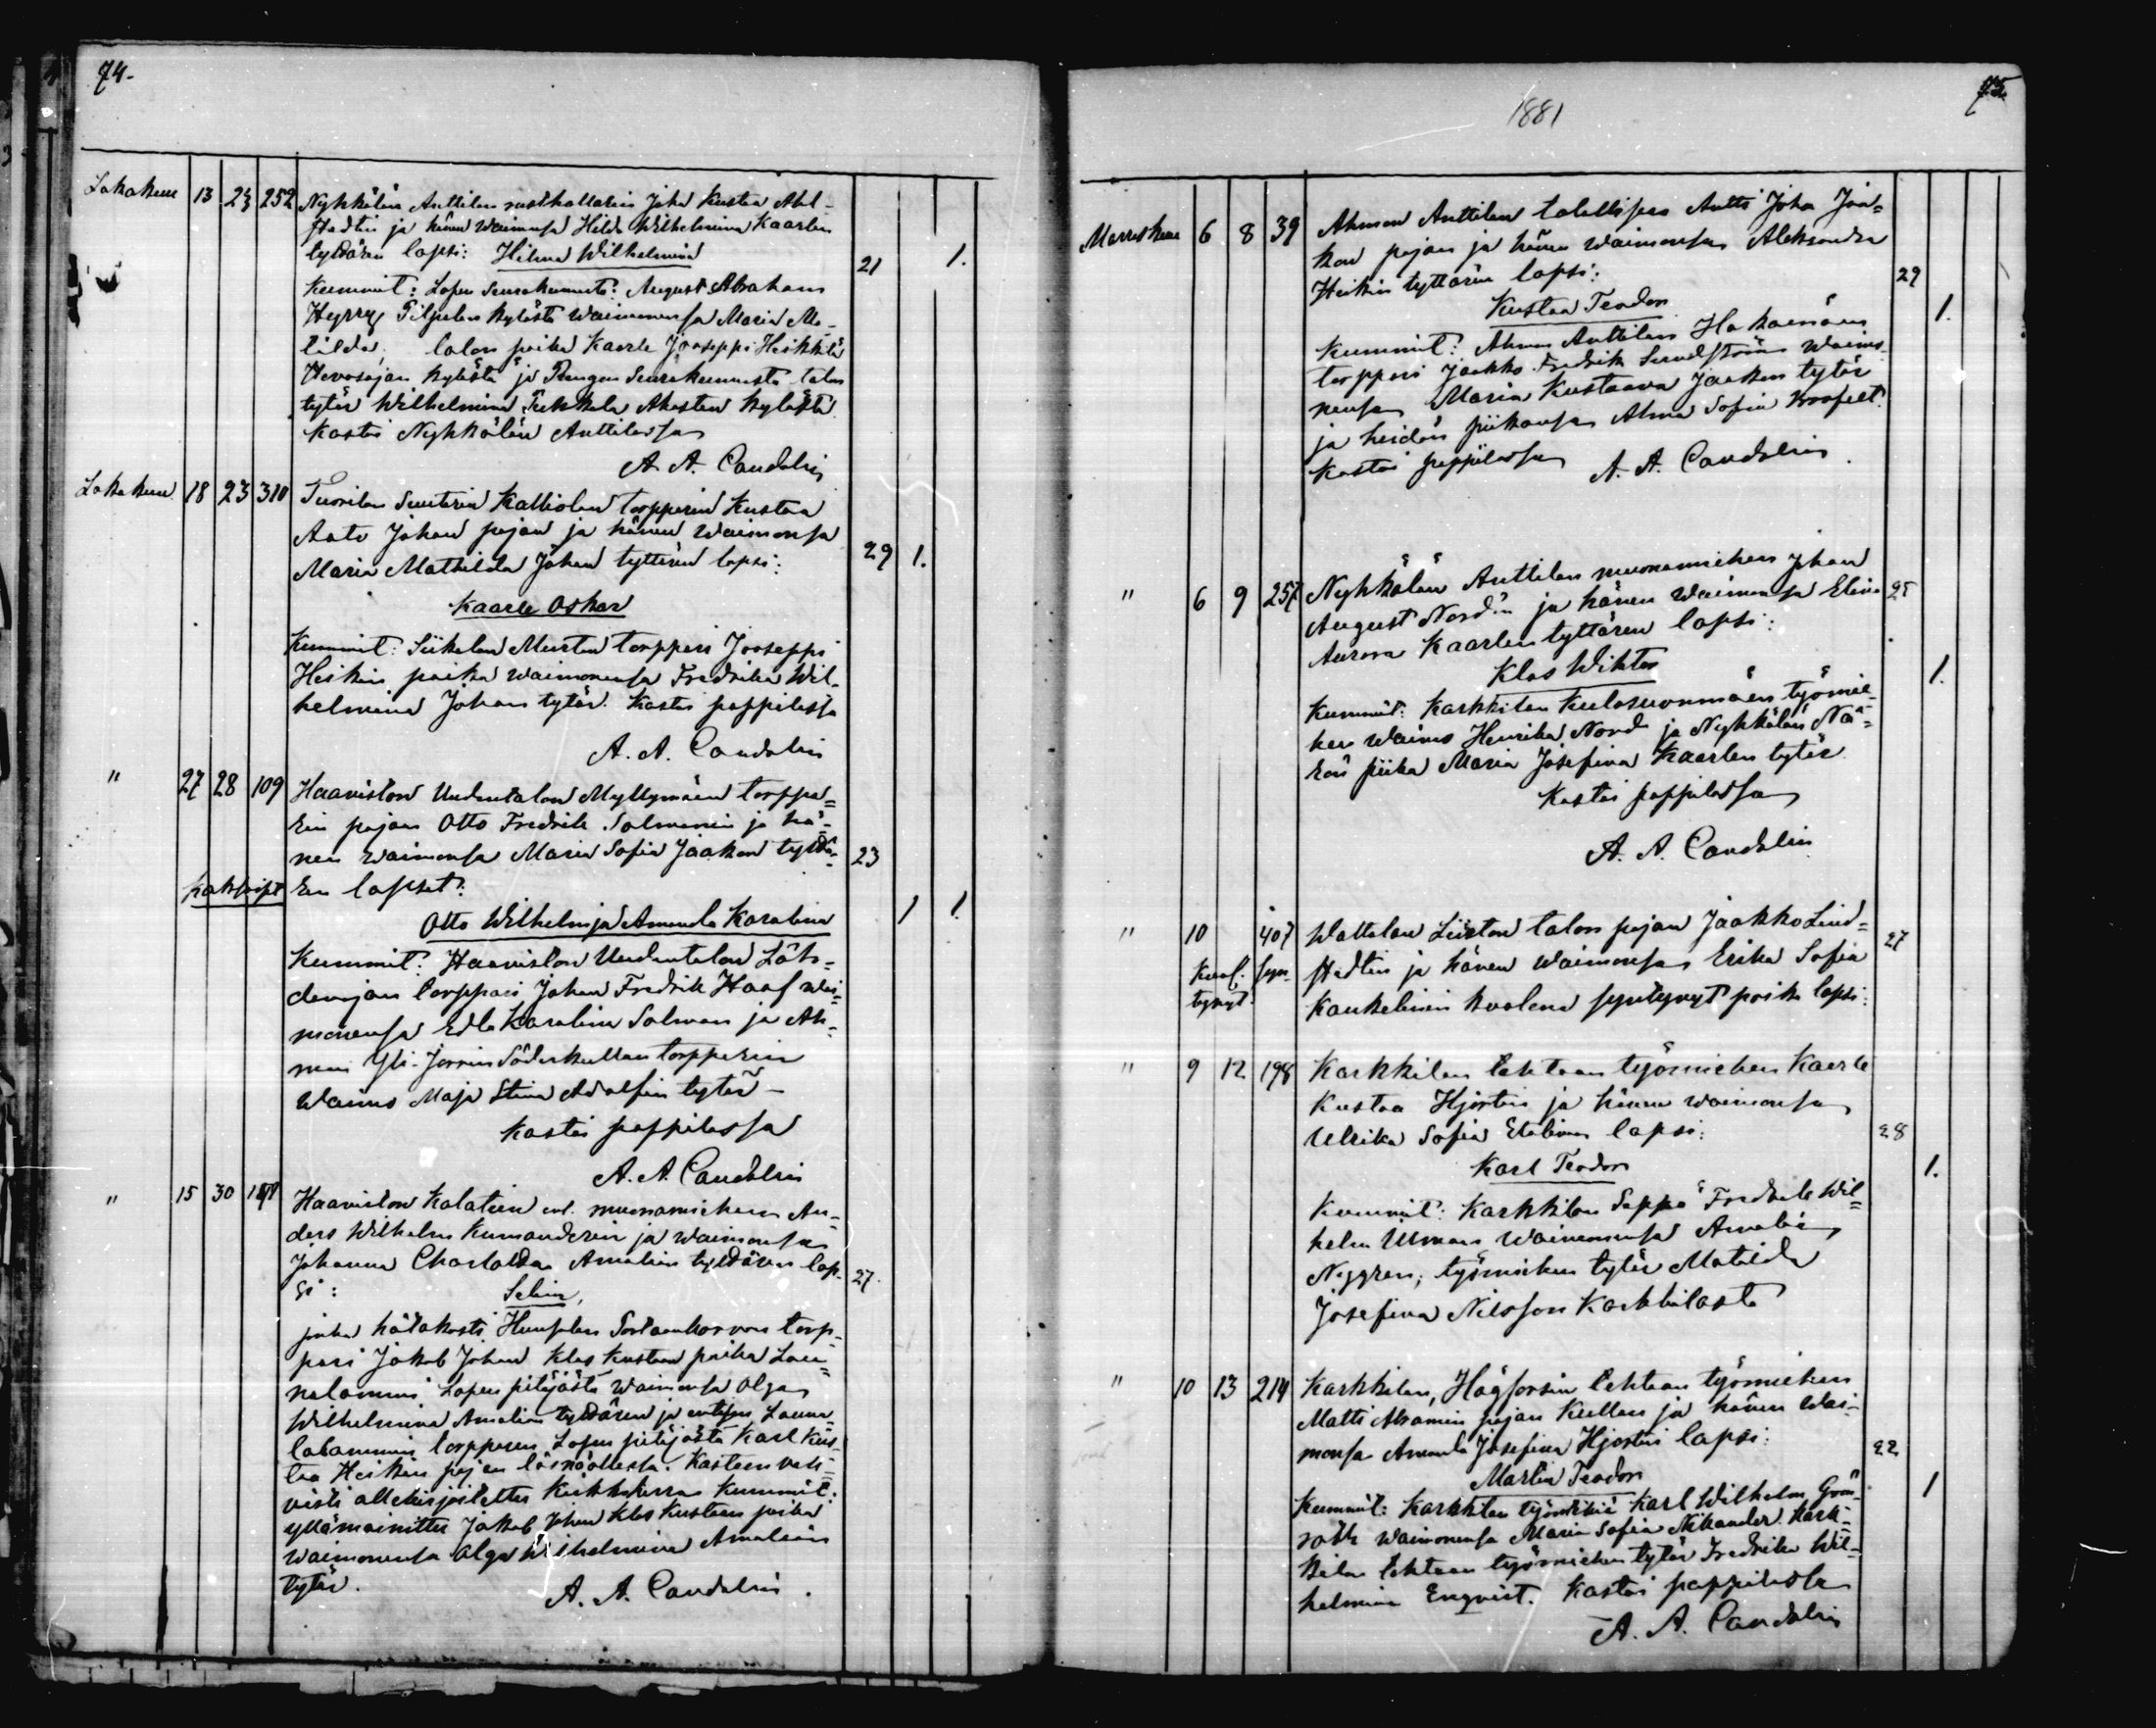 74.
Lokakuu 13 23 252 Nyhkälän Anttilan rusthollarin Juha Kustaa Ahl-
stedtin ja hänen waimonsa Hilda Wilhelmina Kaarlen
tyttären lapsi: Hilma Wilhelmina 21 1.
Kummit: Lopen Seurakunnasta: August Abraham
Pilpalan kylästä waimonensa Maria Ma-
tilda, talon poika Kaarle Jooseppi Heikkilä
Hevosojan kylästä ja Rengon Seurakunnasta talon
tytär Wilhelmina Akosten kylästä.
Kastoi Nyhkälän Anttilassa
A. A. Candolin
Lokakuu 18 23 310 Tuorilan Suuterin Kalliolan torpparin Kustaa
Aato Johan pojan ja hänen waimonsa
Maria Mathilda Johan tyttären lapsi: 29 1.
Kaarle Oskar
Kummit: Siikalan Mustan torppari Jooseppi
Heikin poika waimonensa Fredrika Wil-
helmina Johan tytär. Kastoi pappilassa
A. A. Candolin
" 27 28 109 Haaviston Uudentalon Myllymäen torppa=
rin pojan Otto Fredrik Salmenin ja hä-
nen waimonsa Maria Sofia Jaakon tyttä- 23
kaksoiset ren lapset:
Otto Wilhelm ja Amanda Karolina 1 1.
Kummit: Haaviston Uudentalon Läh-
denojan torppari Johan Fredrik Haaf wai-
monensa Edla Karolina Salman ja Ah-
men Yli-Jovin Söderkullan torpparin
waimo Maja Stina Adolfin tytär-
Kastoi pappilassa
A. A. Candolin
" 15 30 Haaviston Kalatien ent. muonamiehen An-
ders Wilhelm Kumanderin ja waimonsa
Johanna Charlotta Amalian tyttären lap- 27.
si: Selim,
jonka hätäkasti Hunsalan Sorlamkorvan torp-
pari Jakob Johan Klas Kustaan poika
Lopen pitäjästä waimonsa Olga
Wilhelmina Amalian tyttären ja
lalammin torpparin Lopen pitäjästä Karl Kus-
taa Heikin pojan läsnäollessa. Kasteen vah-
visti allekirjoitettu Kirkkoherra Kummit:
yllämainittu Jakob Johan Klas Kustaan poika
waimonensa Olga Wilhelmina Amalian
tytär. A. A. Candolin.
1881
75.
Marraskuu 6 8 39 Ahmon Anttilan talollisen Antti Juha Jaa=
kon pojan ja hänen waimonsa Aleksandra
Heikin tyttären lapsi: 29
Kustaa Teodor 1.
Kummit: Ahmon Anttilan Hakamäen
torppari Jaakko Fredrik Sundström waimo-
nensa Maria Kustaava Jaakon tytär
ja heidän piikansa Alma Sofia
Kastoi pappilassa A. A. Candolin.
" 6 9 257 Nyhkälän Anttilan muonamiehen Johan
August Nordin ja hänen waimonsa Elina 25
Aurora Kaarlen tyttären lapsi:
Klas Wiktor 1.
Kummit: Karkkilan Kulosuonmäen työmie-
hen waimo Henrika Nord ja Nyhkälän Nä-
rän piika Maria Josefina Kaarlen tytär
Kastoi pappilassa
A. A. Candolin
" 10 407 Wattolan Liiston talon pojan Jaakko Lind= 27
Kuol. syn- stedtin ja hänen waimonsa Erika Sofia
tynyt. Kankelinin kuolena syntynyt poika lapsi:
" 9 12 198 Karkkilan tehtaan työmiehen Kaarle
Kustaa Hjortin ja hänen waimonsa
Ulrika Sofia lapsi: 28
Karl Teodor 1.
Kummit: Karkkilan Seppä Fredrik Wil=
helm Uman waimonensa Amalia
Nygren; työmiehen tytär Matilda
Josefina Nilsson Karkkilasta
" 10 13 214 Karkkilan, Högforsin tehtaan työmiehen
Matti Abramin pojan Kullan ja hänen wai-
monsa Amanda Josefina Hjortin lapsi: 22
Martin Teodor 1
Kummit: Karkkilan työmies Karl Wilhelm Grön-
roth waimonensa Maria Sofia Nikander. Kark-
kilan tehtaan työmiehen tytär Fredrika Wil-
helmina Enqvist. Kastoi pappilassa
A. A. Candolin